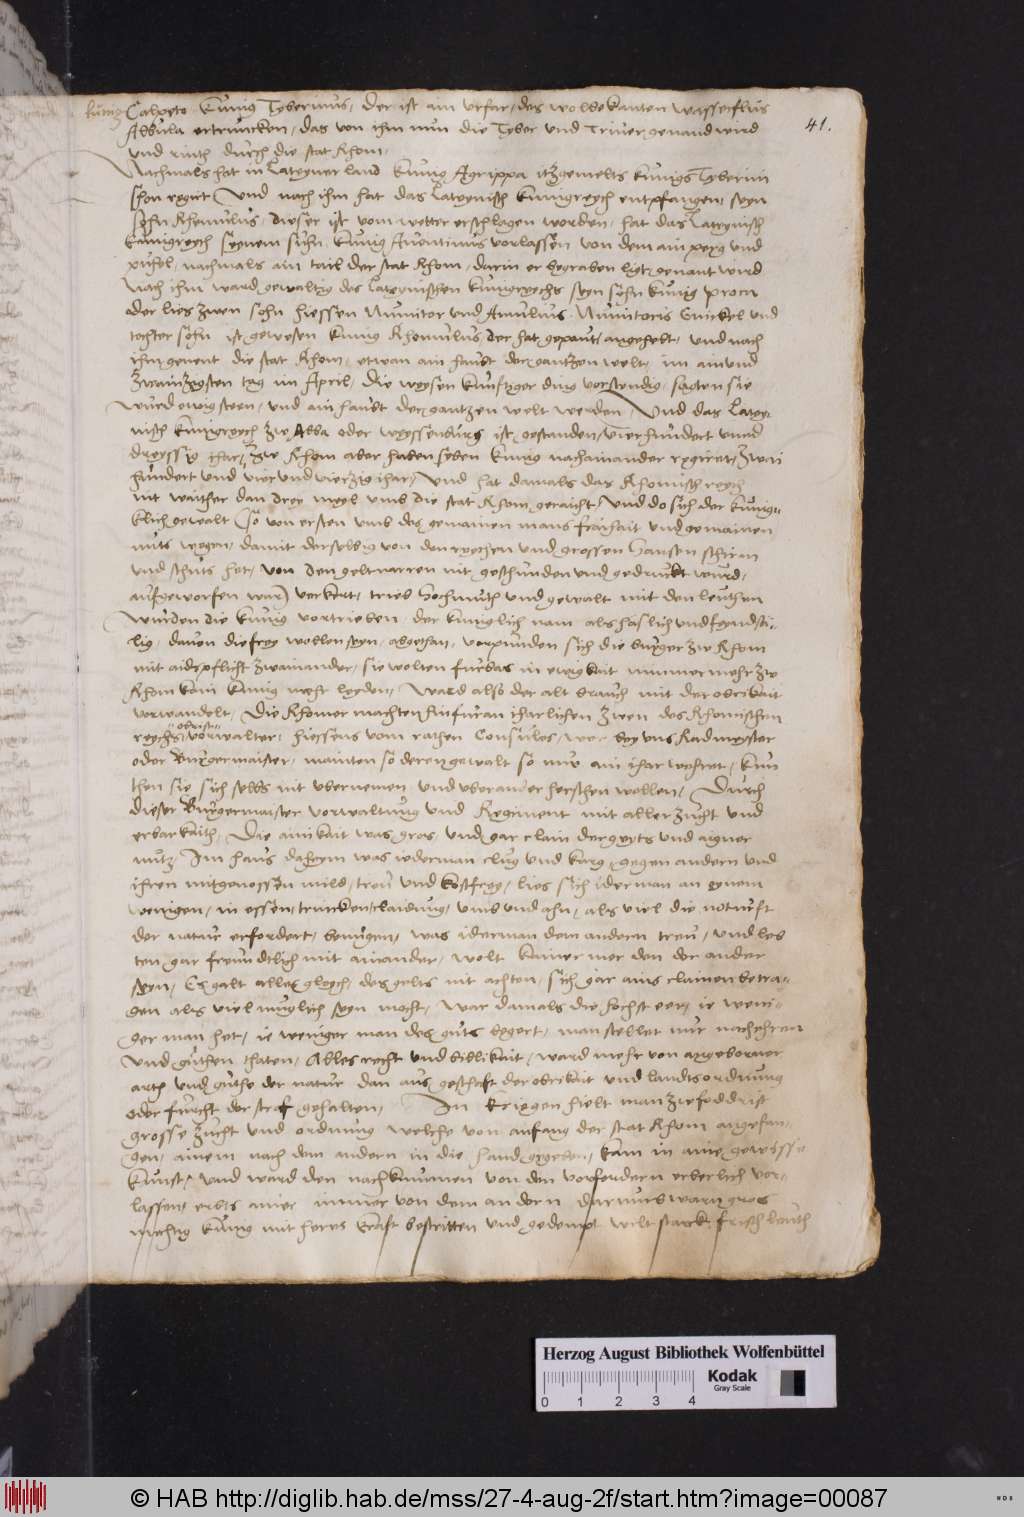 41.
künig Calpeto Künig Tyberinus, der ist ain urfar, des wolbekanten wasserflus
Albula ertruncken, das von ihm nun die Tyber und Triver genand wird
und rinth durch die stat Rhom,
Nachmals hat in Lateyner land Künig Agrippa itzgemelts künigs Tyberini
shon regirt Und nach ihm hat das Lateynisch künigreych entpfangen, seyn
sohn Rhemulus, dieser ist vom wetter erschlagen worden, hat das Lateynisch
künigreych seynem suhn künig Aventinus verlassen von dem ain perg und
puhel, nachmals ain tail der stat Rhom, darin er begraben ligt, genant wird
Nach ihm ward gewaltig des Lateynischen künigreychs seyn sohn künig Proca
der lies zwen sohn hiessen Numitor und Amulius Numitoris Enickel und
tochter sohn ist gewesen künig Rhomulus, der hat gepaut, angehebt, und nach
ihm genent die stat Rhom, etwan ain haubt der gantzen welt, im ainund
zwaintzigsten tag im April, Die weysen künftiger ding verstendig, sagten sie
würd ewig steen, und ain haubt der gantzen welt werden Und das Latey-
nisch künigreych zw Alba oder Weyssenburg ist gestanden, vierhundert unnd
dreyssig ihar, zw Rhom aber haben syben künig nachainander regirt, zwai
hundert und vier und vierzig ihar, Und hat damals das Rhomisch reych
nit waither dan drey meyl umb die stat Rhom geraicht, Und do sich der künig-
klich gewalt (so von ersten umb des gemainen mans fraihait und gemainen
nuts wegen, damit derselbig von den reychen und grossen Hansen schirm
und schuts het, von den geltnarren nit geschunden und gedruckt wurd,
aufgeworfen war) verkert, trieb Hochmuth und gewalt mit den leuthen
Wurden die künig vertrieben, der küniglich nam als haslich und feyndsä-
lig, davon die frey wollen seyn, abgethan, verpunden sich die burger zw Rhom
mit aidspflicht zwainander, sie wolten furbas in ewigkait nimmermehr zw
Rhom kain künig mehr leyden, Ward also der alt brauch mit der obrikait
verwandelt, Die Rhomer machten hinfuran iharlichen zwen des Rhomischen
reychs obrist verwalter, hiessens vom rathen Consules, wer bey uns Radmeyster
oder Burgermaister, mainten so deren gewalt so nur ain ihar wehret, kun
then sie sich selbs nit ubernemen und uberander herschen wollen, Durch
dieser Burgermaister verwaltung und Regiment mit aller zucht und
erbarkaith, Die ainikait was gros, und gar clain der geyts und aigner
nutz, Im haus dahaym was iederman clug und karg, gegen andern und
ihren mitgenossen mild, treu und kostfrey, lies sich iderman an eynem
wenigen, in essen, trincken, claidung, umb und ahn, als viel die noturft
der natur erfordert, benugen, was iderman dem andern treu, und leb
ten gar freundtlich mit ainander, wolt kainer mer den der ander
seyn, Es galt alles gleych, des gelts nit achten, sich gar ains clainen betra-
gen als viel muglich seyn mocht, war damals die hochst eer, ie weni-
ger man het, ie weniger man des guts begert, man stellet nur nach ehren
und guthen thaten, Alles recht und billikait, ward mehr von angeborner
arth und guthe der natur dan aus gescheft der obrikait und landtsordnung
oder furcht der straf gehalten, In kriegen hielt man zw fodderist
grosse zucht und ordnung welche von anfang der stat Rhom angefan-
gen, ainem nach dem andern in die hand gegeben, kam in ainer gewisse
kunst, und ward den nachkummen von den vorfordern erberlich ver-
lassen, erbts ainer immer von dem andern Darumb warn gros
mechtig künig mit heres kraft bestritten und gedempt, wilt starck, frisch leuth
Herzog August Bibliothek Wolfenbüttel
Kodak
Gray Scale
0 1 2 3 4
© HAB http://diglib.hab.de/mss/27-4-aug-2f/start.htm?image=00087